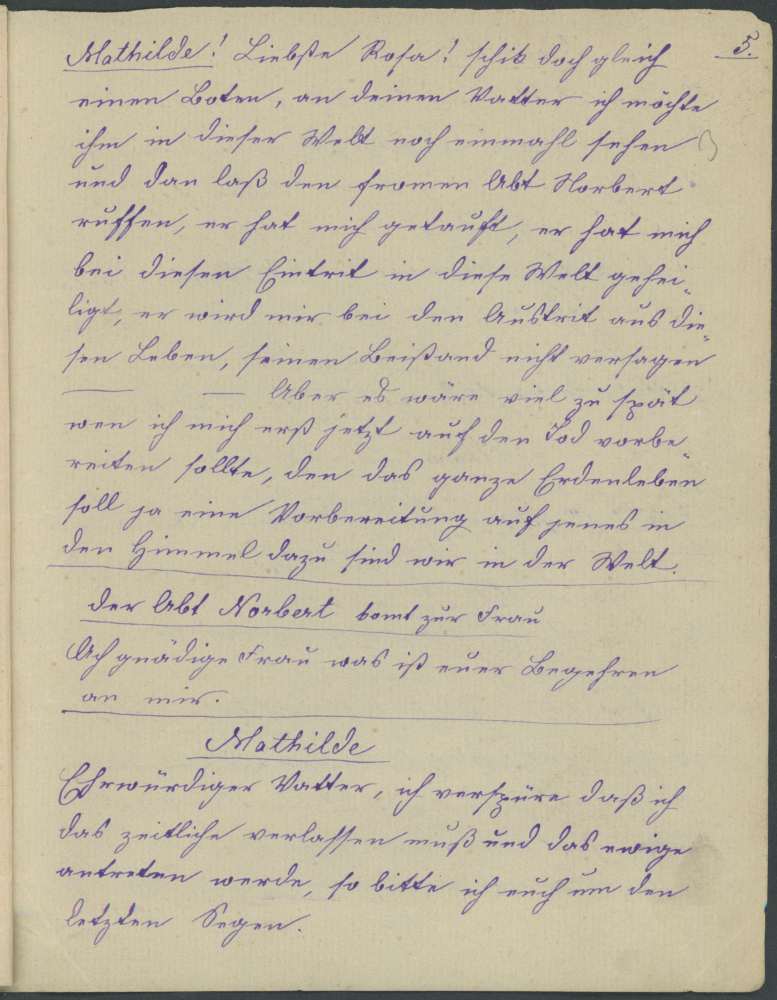 5.
Mathilde! Liebste Rosa! schik doch gleich
einen Boten, an deinen Vatter ich möchte
ihm in dieser Welt noch einmahl sehen
und dan laß den fromen Abt Norbert
ruffen, er hat mich getauft, er hat mich
bei diesen Eintrit in diese Welt gehei„
ligt, er wird mir bei den Austrit aus die„
sen Leben, seinen Beistand nicht versagen
— — Aber es wäre viel zu spät
wen ich mich erst jetzt auf den Tod vorbe„
reiten sollte, den das ganze Erdenleben
soll ja eine Vorbereitung auf jenes in
den Himmel dazu sind wir in der Welt.
der Abt Norbert komt zur Frau
Ach gnädige Frau was ist euer Begehren
an mir.
Mathilde
Ehrwürdiger Vatter, ich verspüre daß ich
das zeitliche verlassen muß und das ewige
antreten werde, so bitte ich euch um den
letzten Segen.